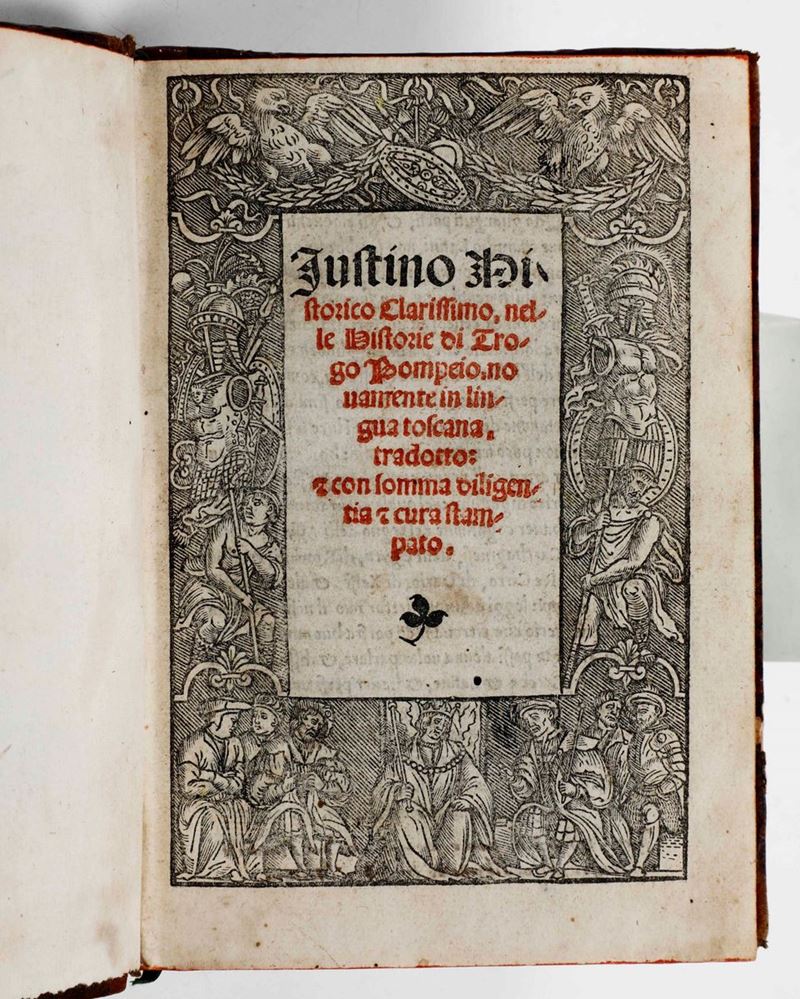 Justino Hi-
storico Clarissimo, nel-
le Historie di Tro-
go Pompeio, no
uamente in lin-
gua toscana,
tradotto:
⁊ con somma diligen-
tia ⁊ cura stam-
pato.